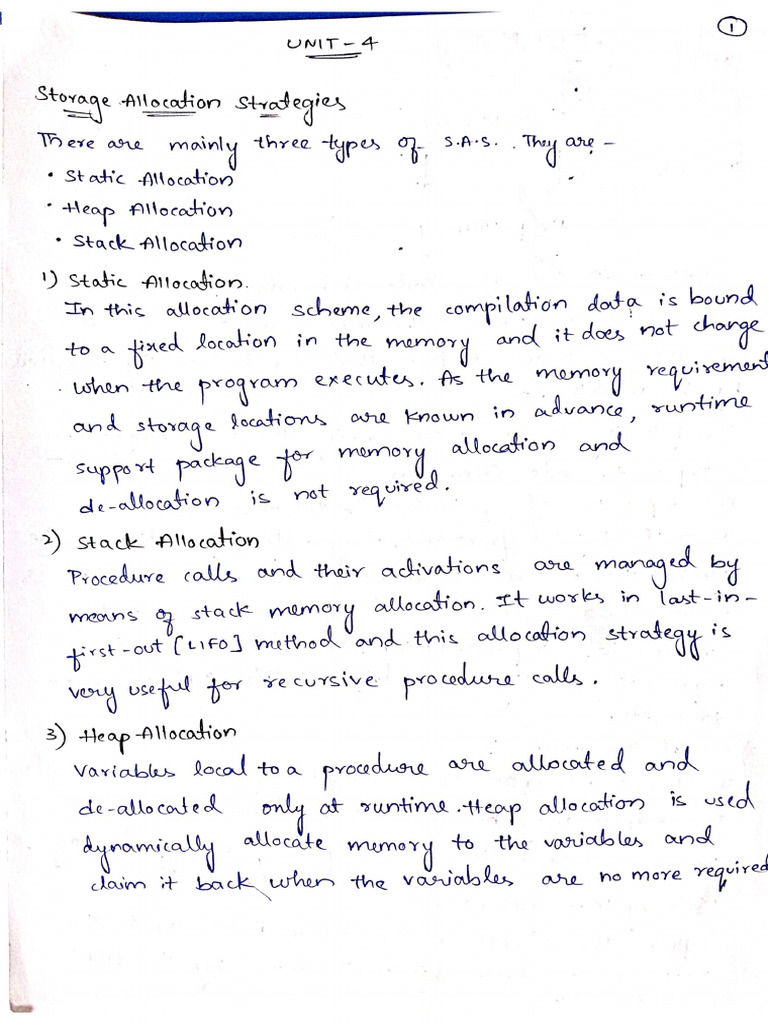 1
UNIT - 4
Storage Allocation Strategies
There are mainly three types of S.A.S. They are -
• Static Allocation
• Heap Allocation
• Stack Allocation
1) Static Allocation.
In this allocation scheme, the compilation data is bound
to a fixed location in the memory and it does not change
when the program executes. As the memory requirement
and storage locations are known in advance, runtime
support package for memory allocation and
de-allocation is not required.
2) Stack Allocation
Procedure calls and their activations are managed by
means of stack memory allocation. It works in last-in-
first-out [LIFO] method and this allocation strategy is
very useful for recursive procedure calls.
3) Heap Allocation
Variables local to a procedure are allocated and
de-allocated only at runtime. Heap allocation is used
dynamically allocate memory to the variables and
claim it back when the variables are no more required